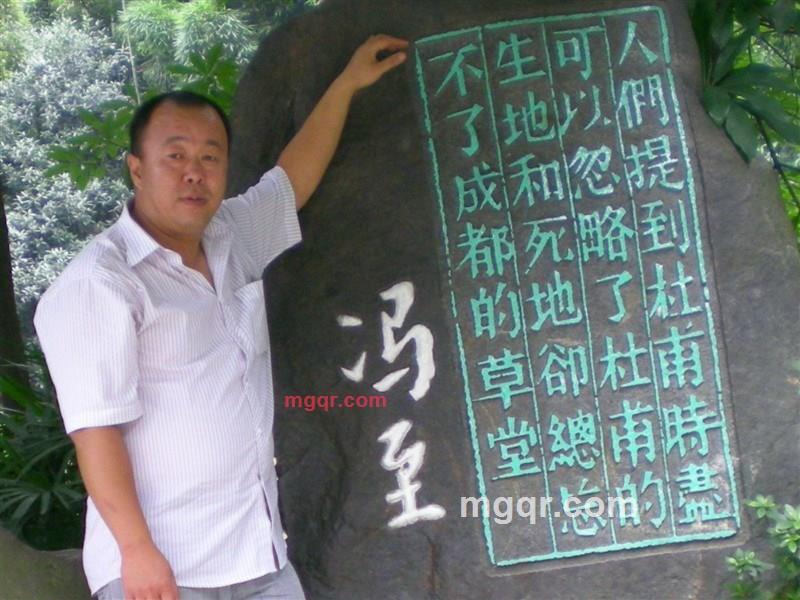 人們提到杜甫時盡
可以忽略了杜甫的
生地和死地卻總忘
不了成都的草堂
冯至
mgqr.com
mgqr.com